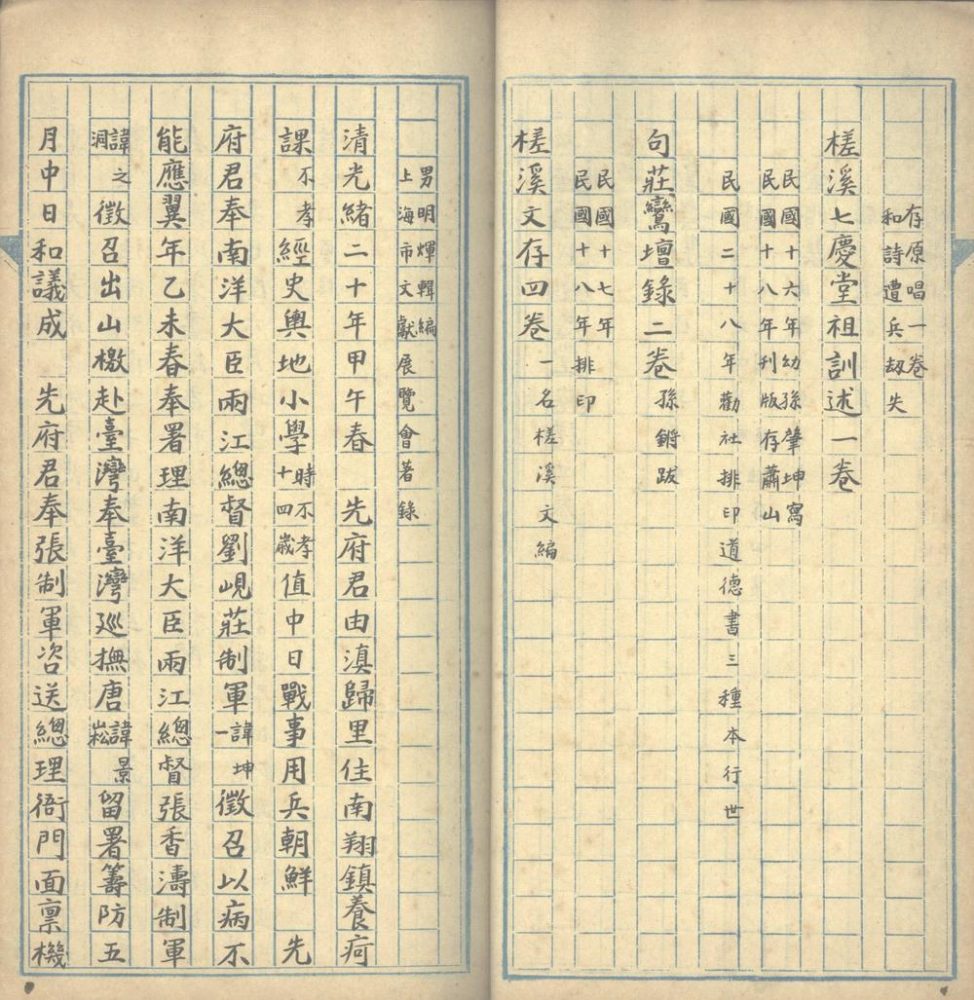 存原唱一卷
和詩遭兵刼失
槎溪七慶堂祖訓述一卷
民國十六年幼孫肇坤寫
民國十八年刊版存蕭山
民國二十八年勸社排印道德書三種本行世
句莊鸞壇錄二卷 孫鏘跋
民國十七年
民國十八年排印
槎溪文存四卷 一名槎溪文編
男明煇輯編
上海市文獻展覽會著錄
清光緒二十年甲午春 先府君由滇歸里住南翔鎮養疴
課不孝經史輿地小學時不孝十四歲值中日戰事用兵朝鮮 先
府君奉南洋大臣兩江總督劉峴莊制軍諱坤一徵召以病不
能應翼年乙未春奉署理南洋大臣兩江總督張香濤制軍
諱之洞徵召出山檄赴臺灣奉臺灣巡撫唐諱景崧留署籌防五
月中日和議成 先府君奉張制軍咨送總理衙門面稟機